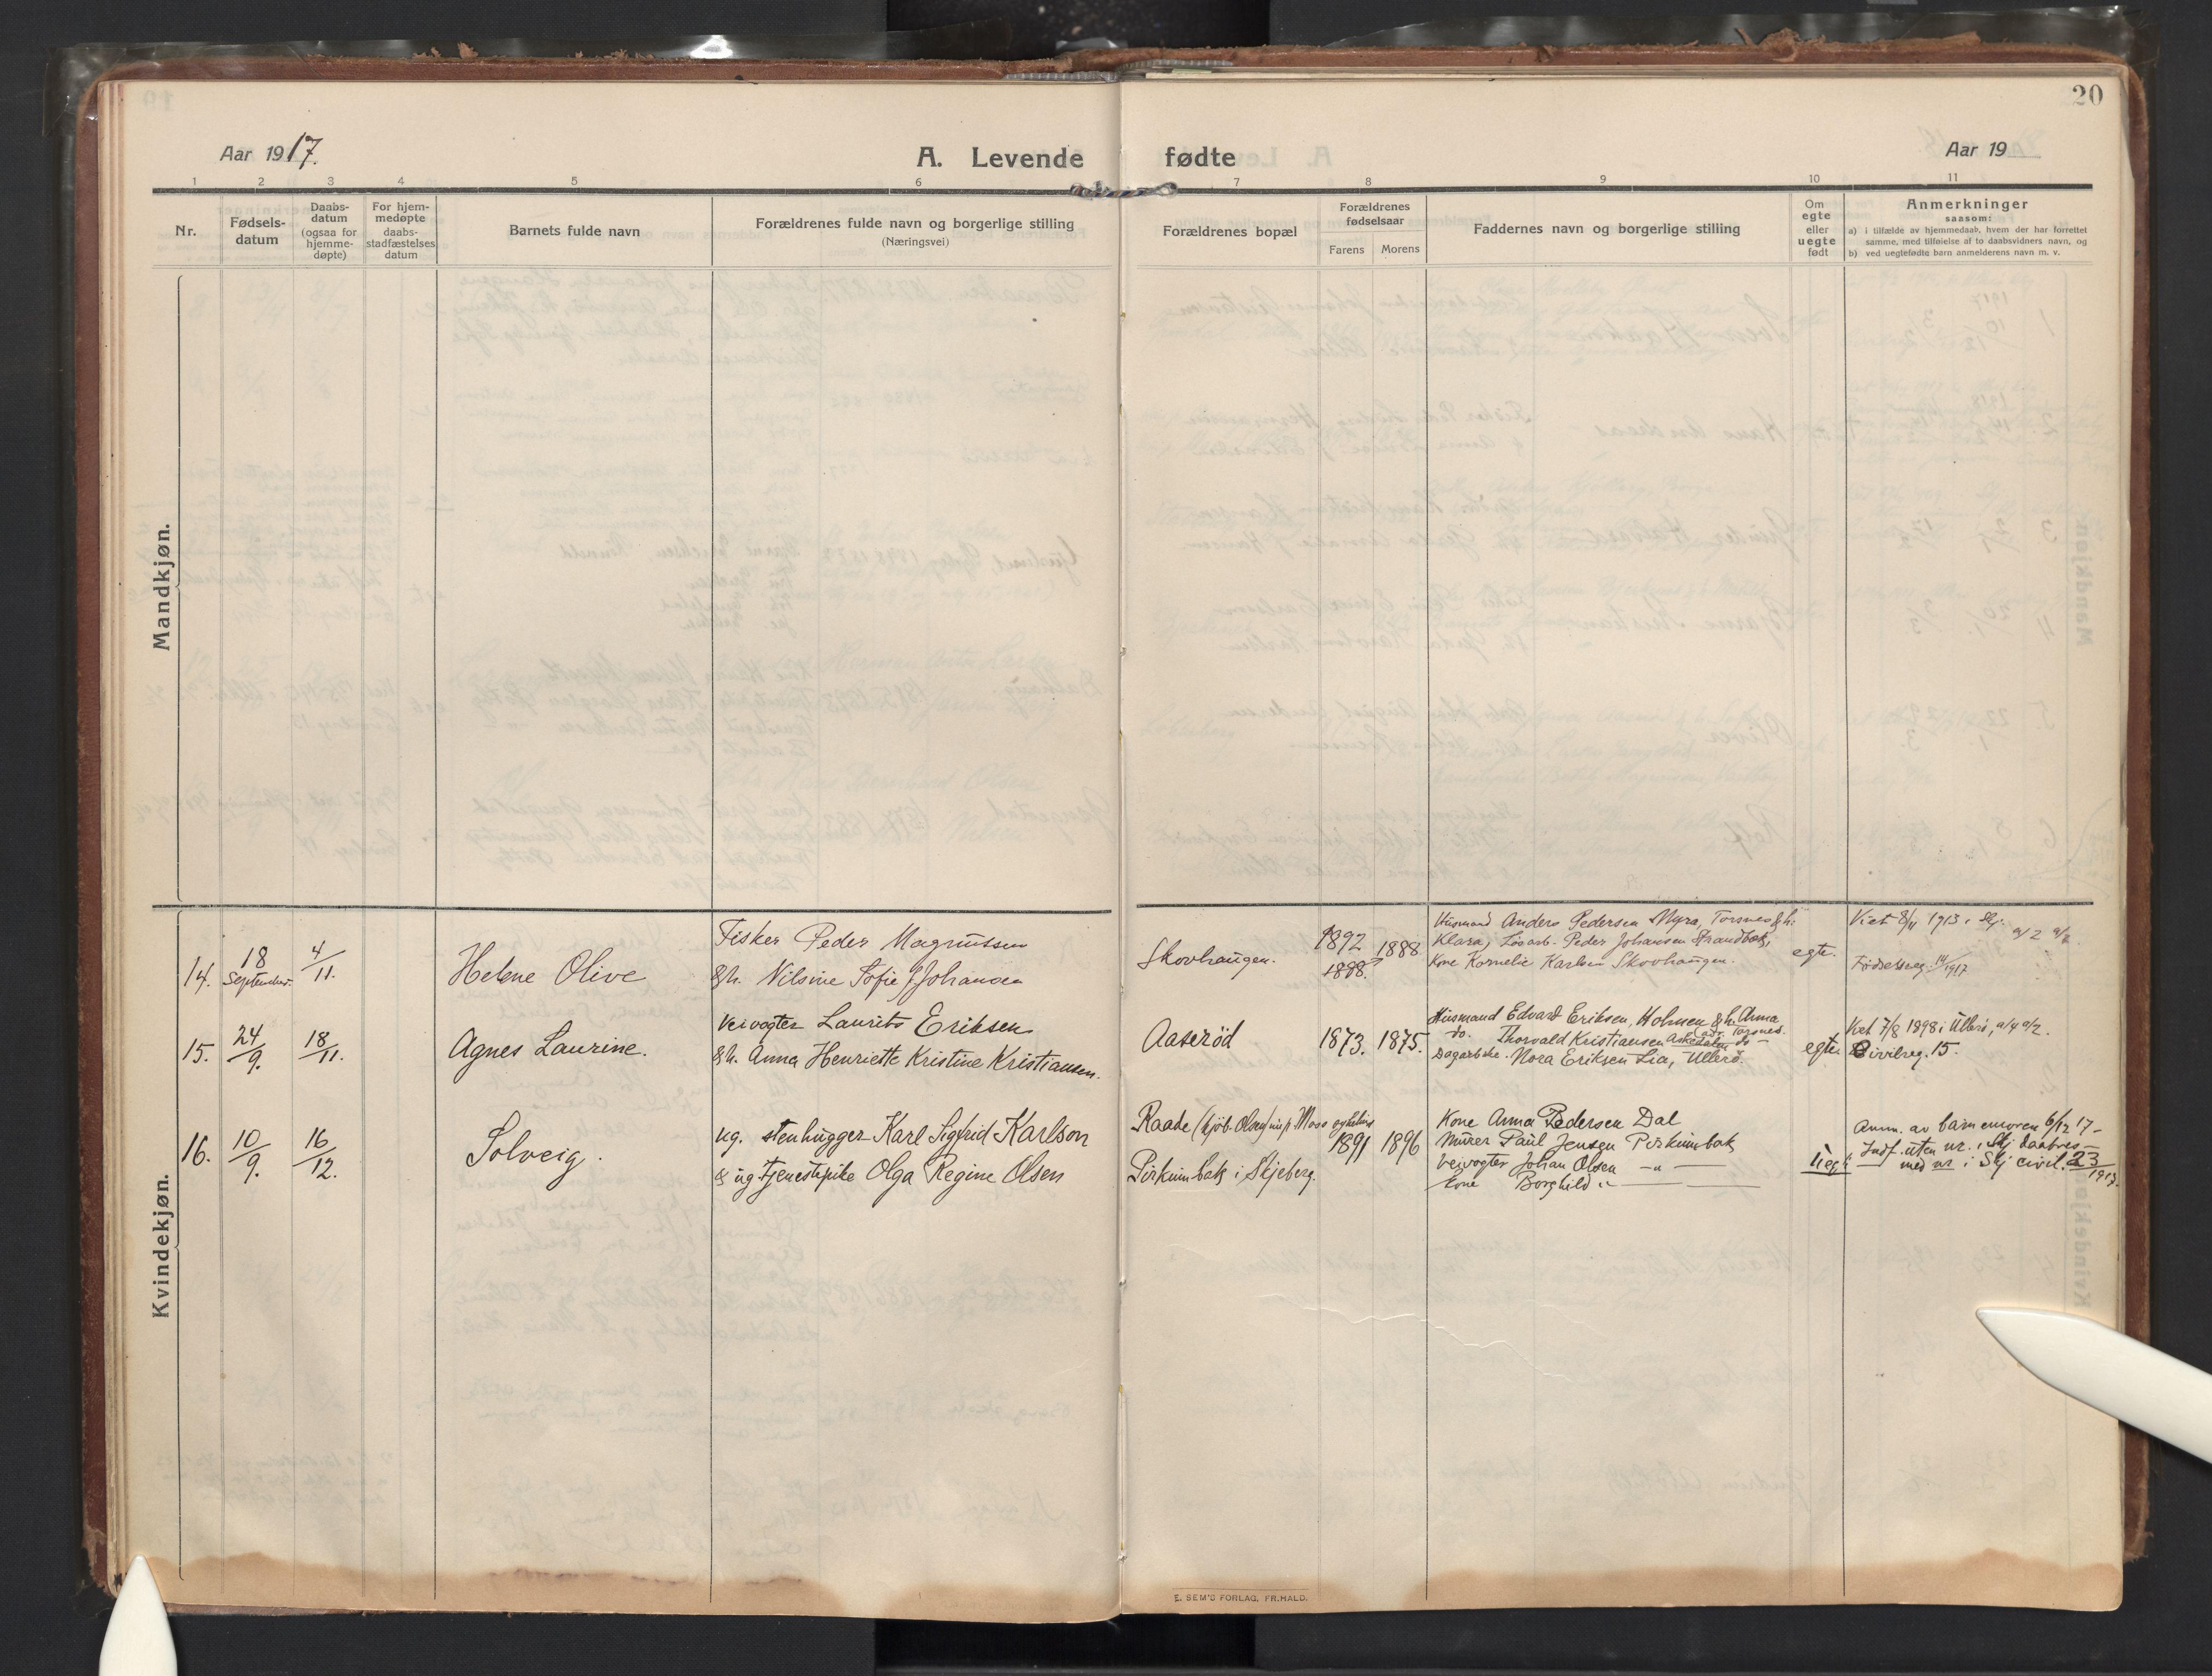 20
Aar 1917.
A. Levende fødte
Aar 19
1 2 3 4 5 6 7 8 9 10 11
Nr.
Fødsels-
datum
Daabs-
datum
(ogsaa for
hjemme-
døpte)
For hjem-
medøpte
daabs-
stadfæstelses
datum
Barnets fulde navn
Forældrenes fulde navn og borgerlige stilling
(Næringsvei)
Forældrenes bopæl
Forældrenes
fødselsaar
Farens Morens
Faddernes navn og borgerlige stilling
Om
egte
eller
uegte
født
Anmerkninger
saasom:
a) i tilfælde av hjemmedaab, hvem der har forrettet
samme, med tilføielse af to daabsvidners navn, og
b) ved uegtefødte barn anmelderens navn m. v.
Mandkjøn.
Kvindekjøn.
14.
18
September.
4/11.
Helene Olive
Fisker Peder Magnussen
& h. Nilsine Sofie f. Johansen
Skovhaugen.
1892
1898.
1888
Husmand Anders Pedersen Myra, Torsnes & h.
Klara, Løsarb. Peder Johansen Strandbak,
Kone Kornelie Karlsen Skovhaugen.
egte.
Viet 8/11 1913 i Skj.
a/2 a/2
Fødselsreg. 14/1917
15.
24/9.
18/11.
Agnes Laurine.
Veivogter Laurits Eriksen
& h. Anna Henriette Kristine Kristiansen.
Aaserød
1873. 1875.
Husmand Edvard Eriksen, Holmen & h. Anna
do. Thorvald Kristiansen Askedalen Torsnes
do
Dagarb.ske. Nora Eriksen Lia, Ullerø.
egte
Viet 7/8 1898 i Ullerø, a/4 a/2.
Civilreg. 15.
16.
10/9.
16/12.
Solveig.
ug. stenhugger Karl Sigfrid Karlson
& ug tjenestepike Olga Regine Olsen
Raade
Moss
1891 1896
Pirkumbak i Skjeberg.
Kone Anna Pedersen Dal
Murer Paul Jensen Pirkumbak
Veivogter Johan Olsen —"—
Kone Borghild "
uegte
Anm. av barnemoren 6/12 17 -
Indf. uten nr. i Skj daabsreg
med nr i Skj civil. 23/1917.
E. SEM'S FORLAG, FR.HALD.